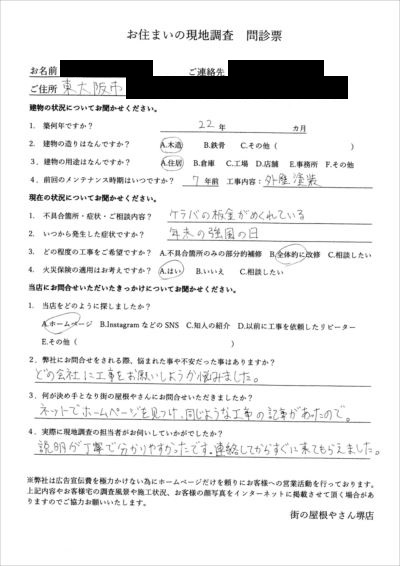 お住まいの現地調査　問診票
お名前　ご連絡先
ご住所 東大阪市
建物の状況についてお聞かせください。
1．築何年ですか？　22年　カ月
2．建物の造りはなんですか？　A.木造　B.鉄骨　C.その他（　）
3．建物の用途はなんですか？　A.住居　B.倉庫　C.工場　D.店舗　E.事務所　F.その他
4．前回のメンテナンス時期はいつですか？　7年前　工事内容：外壁塗装
現在の状況についてお聞かせください。
1．不具合箇所・症状・ご相談内容？　ケラバの板金がめくれている
2．いつから発生した症状ですか？　年末の強風の日
3．どの程度の工事をご希望ですか？　A.不具合箇所のみの部分的補修　B.全体的に改修　C.相談したい
4．火災保険の適用はお考えですか？　A.はい　B.いいえ　C.相談したい
当店にお問合せいただいたきっかけについてお聞かせください。
1．当店をどのように探しましたか？
A.ホームページ　B.Instagram などの SNS　C.知人の紹介　D.以前に工事を依頼したリピーター
E.その他（　）
2．弊社にお問合せをされる際、悩まれた事や不安だった事はありますか？
どの会社に工事をお願いしようか悩みました。
3．何が決め手となり街の屋根やさんにお問合せいただきましたか？
ネットでホームページを見つけ、同じような工事の記事があったので。
4．実際に現地調査の担当者がお伺いしていかがでしたか？
説明が丁寧で分かりやすかったです。連絡してからすぐに来てもらえました。
※弊社は広告宣伝費を極力かけない為にホームページだけを頼りにお客様への営業活動を行っております。
上記内容やお客様宅の調査風景や施工状況、お客様の顔写真をインターネットに掲載させて頂く場合があ
りますのでご協力お願いいたします。
街の屋根やさん堺店